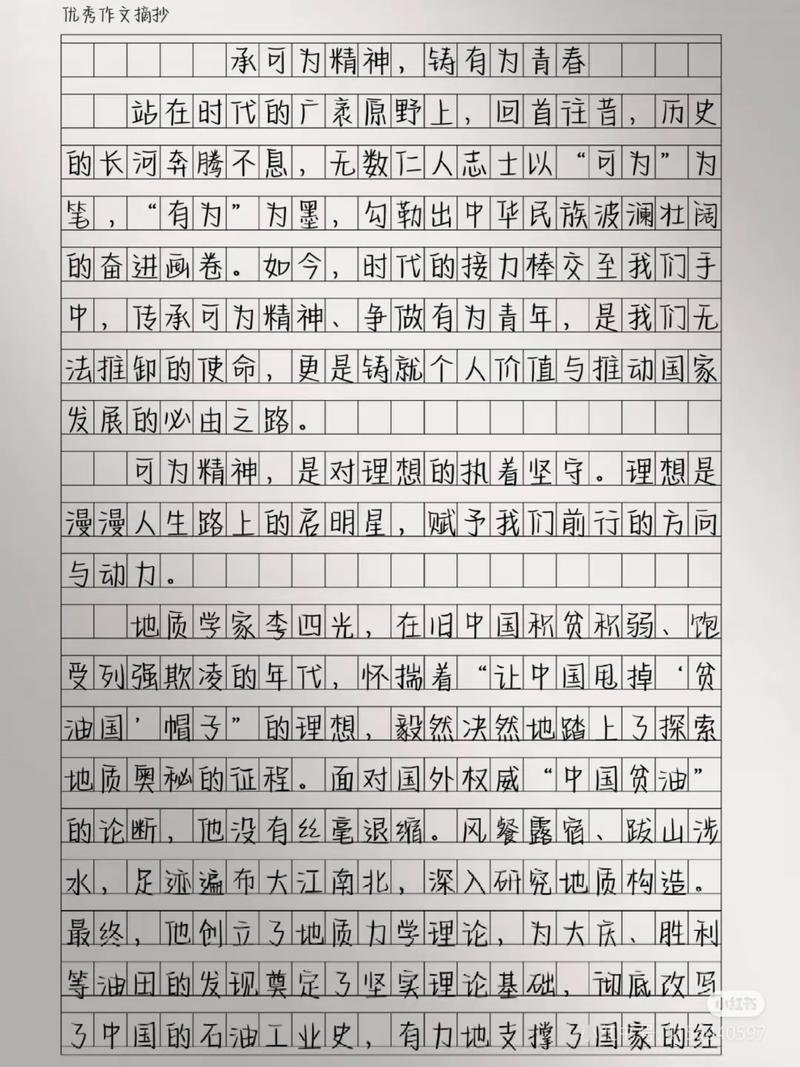 优秀作文摘抄
承可为精神，铸有为青春
站在时代的广袤原野上，回首往昔，历史
的长河奔腾不息，无数仁人志士以“可为”为
笔，“有为”为墨，勾勒出中华民族波澜壮阔
的奋进画卷。如今，时代的接力棒交至我们手
中，传承可为精神、争做有为青年，是我们无
法推卸的使命，更是铸就个人价值与推动国家
发展的必由之路。
可为精神，是对理想的执着坚守。理想是
漫漫人生路上的启明星，赋予我们前行的方向
与动力。
地质学家李四光，在旧中国积贫积弱、饱
受列强欺凌的年代，怀揣着“让中国甩掉‘贫
油国’帽子”的理想，毅然决然地踏上了探索
地质奥秘的征程。面对国外权威“中国贫油”
的论断，他没有丝毫退缩。风餐露宿、跋山涉
水，足迹遍布大江南北，深入研究地质构造。
最终，他创立了地质力学理论，为大庆、胜利
等油田的发现奠定了坚实理论基础，彻底改写
了中国的石油工业史，有力地支撑了国家的经
小红书